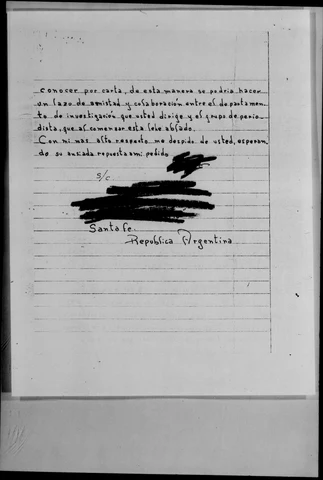 conocer por carta, de esta manera se podria hacer
un lazo de amistad y colaboración entre el departamen
to de investigación que usted dirige y el grupo de perio
dista, que al comensar esta le he ablado.
Con mi mas alto respeto me despido de usted, esperan
do su ansiada repuesta a mi pedido
s/c
Santa Fe.
Republica Argentina